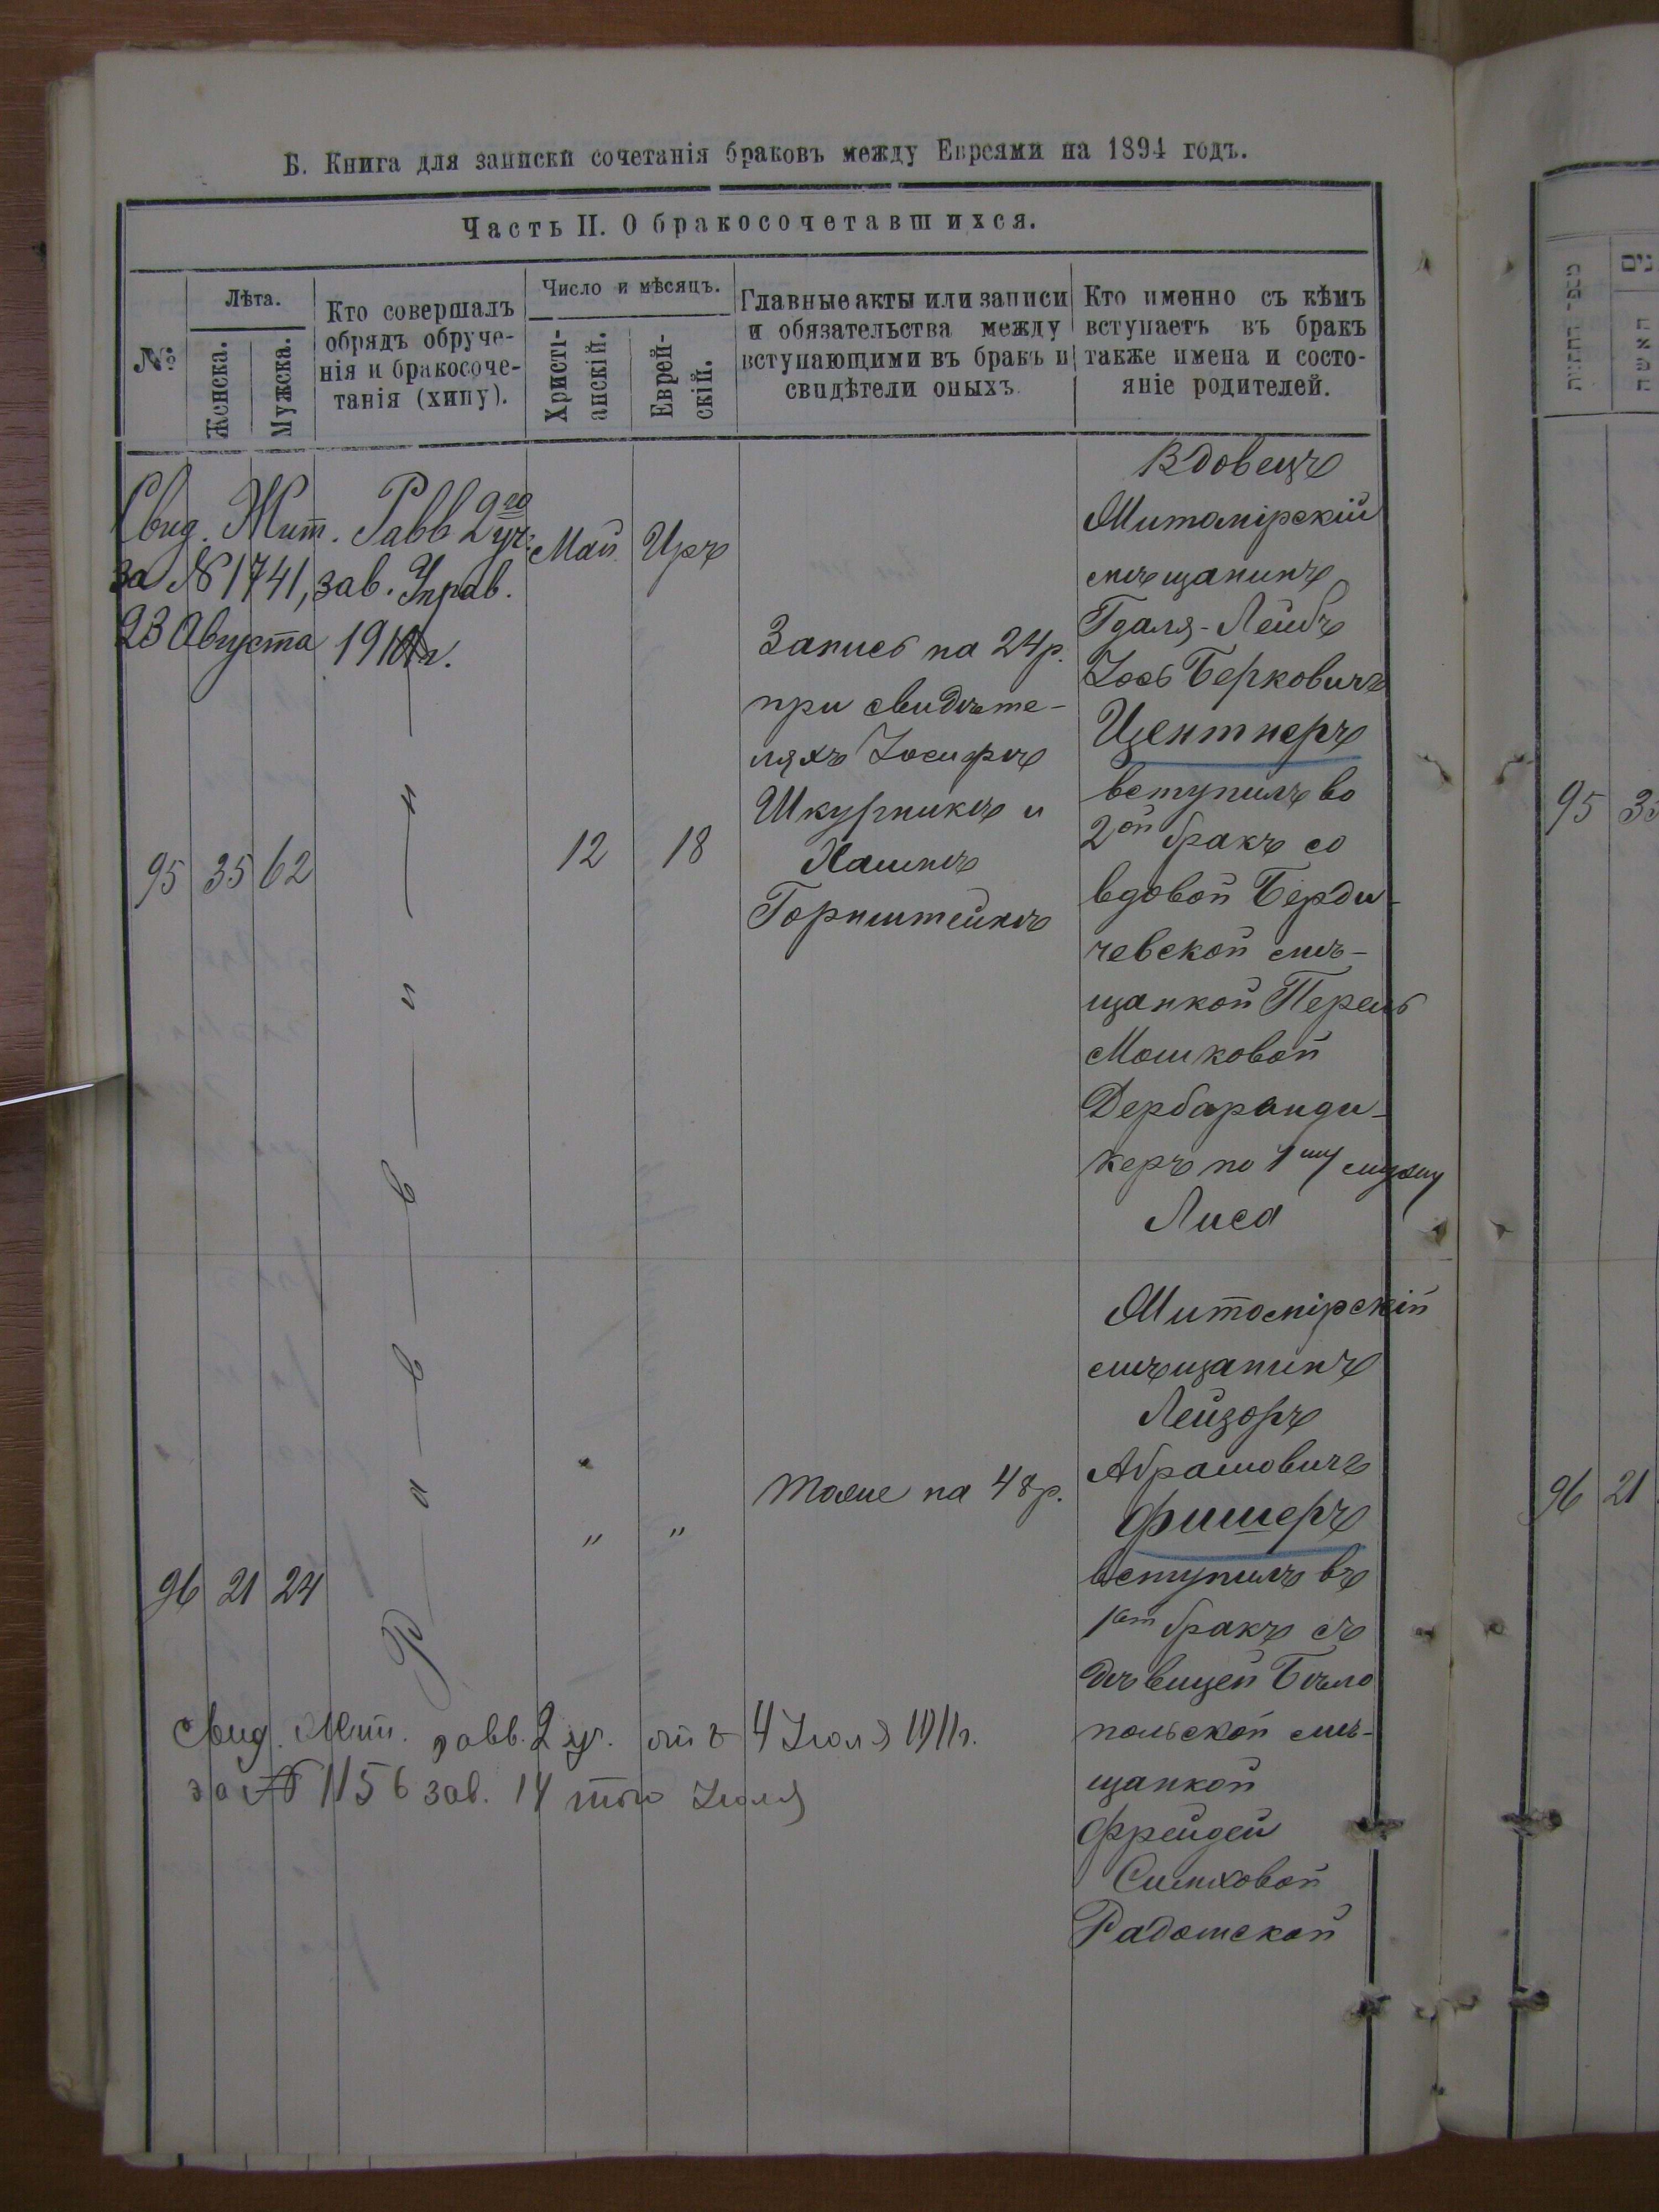 Б. Книга для записки сочетанія браковъ между Евреями на 1894 годъ.
Часть II. О бракосочетавшихся.
№
Лѣта.
Женска.
Мужска.
Кто совершалъ
обрядъ обруче-
нія и бракосоче-
танія (хипу).
Число и мѣсяцъ.
Христі-
анскій.
Еврей-
скій.
Главные акты или записи
и обязательства между
вступающими въ бракъ и
свидѣтели оныхъ.
Кто именно съ кѣмъ
вступаетъ въ бракъ
также имена и состо-
яніе родителей.
Свид. Жит. Равв 2го уч.
за № 1741, зав. Управ.
23 Августа
Раввинъ
95 35 62
Май 12
Иръ 18
Запись на 24 р.
при свидѣте-
ляхъ Іосифѣ
Шкурникѣ и
Хаимѣ
Горнштейнѣ
Вдовецъ
Житомірскій
мѣщанинъ
Гдаля-Лейбъ
Іось Берковичъ
Центнеръ
вступилъ во
2ой бракъ со
вдовой Берди-
чевской мѣ-
щанкой Перель
Мошковой
Дербаранди-
керъ по 1му мужу
Лиса
96 21 24
" "
Тоже на 48 р.
Житомірскій
мѣщанинъ
Лейзоръ
Абрамовичъ
Фишеръ
вступилъ въ
1ый бракъ съ
дѣвицей Бѣло
польской мѣ-
щанкой
Фрейдей
Симховой
Радомской
Свид. Жит. равв. 2 уч. отъ 4 Іюля 1911 г.
за № 1156 зав. 14 того Іюля
95 35
96 21